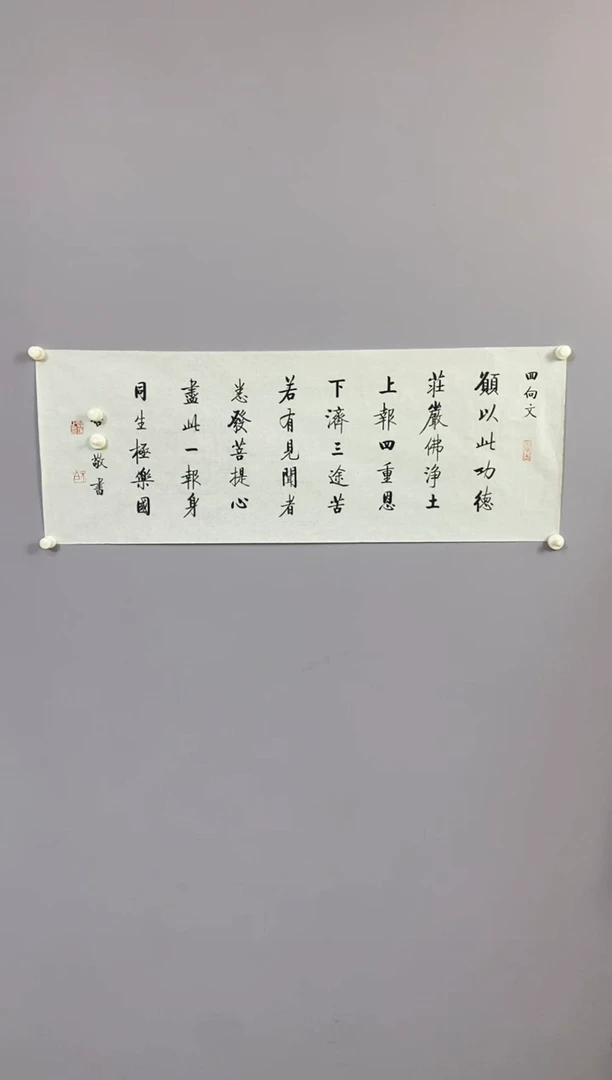 回向文
願以此功德
莊嚴佛淨土
上報四重恩
下濟三途苦
若有見聞者
悉發菩提心
盡此一報身
同生極樂國
敬書